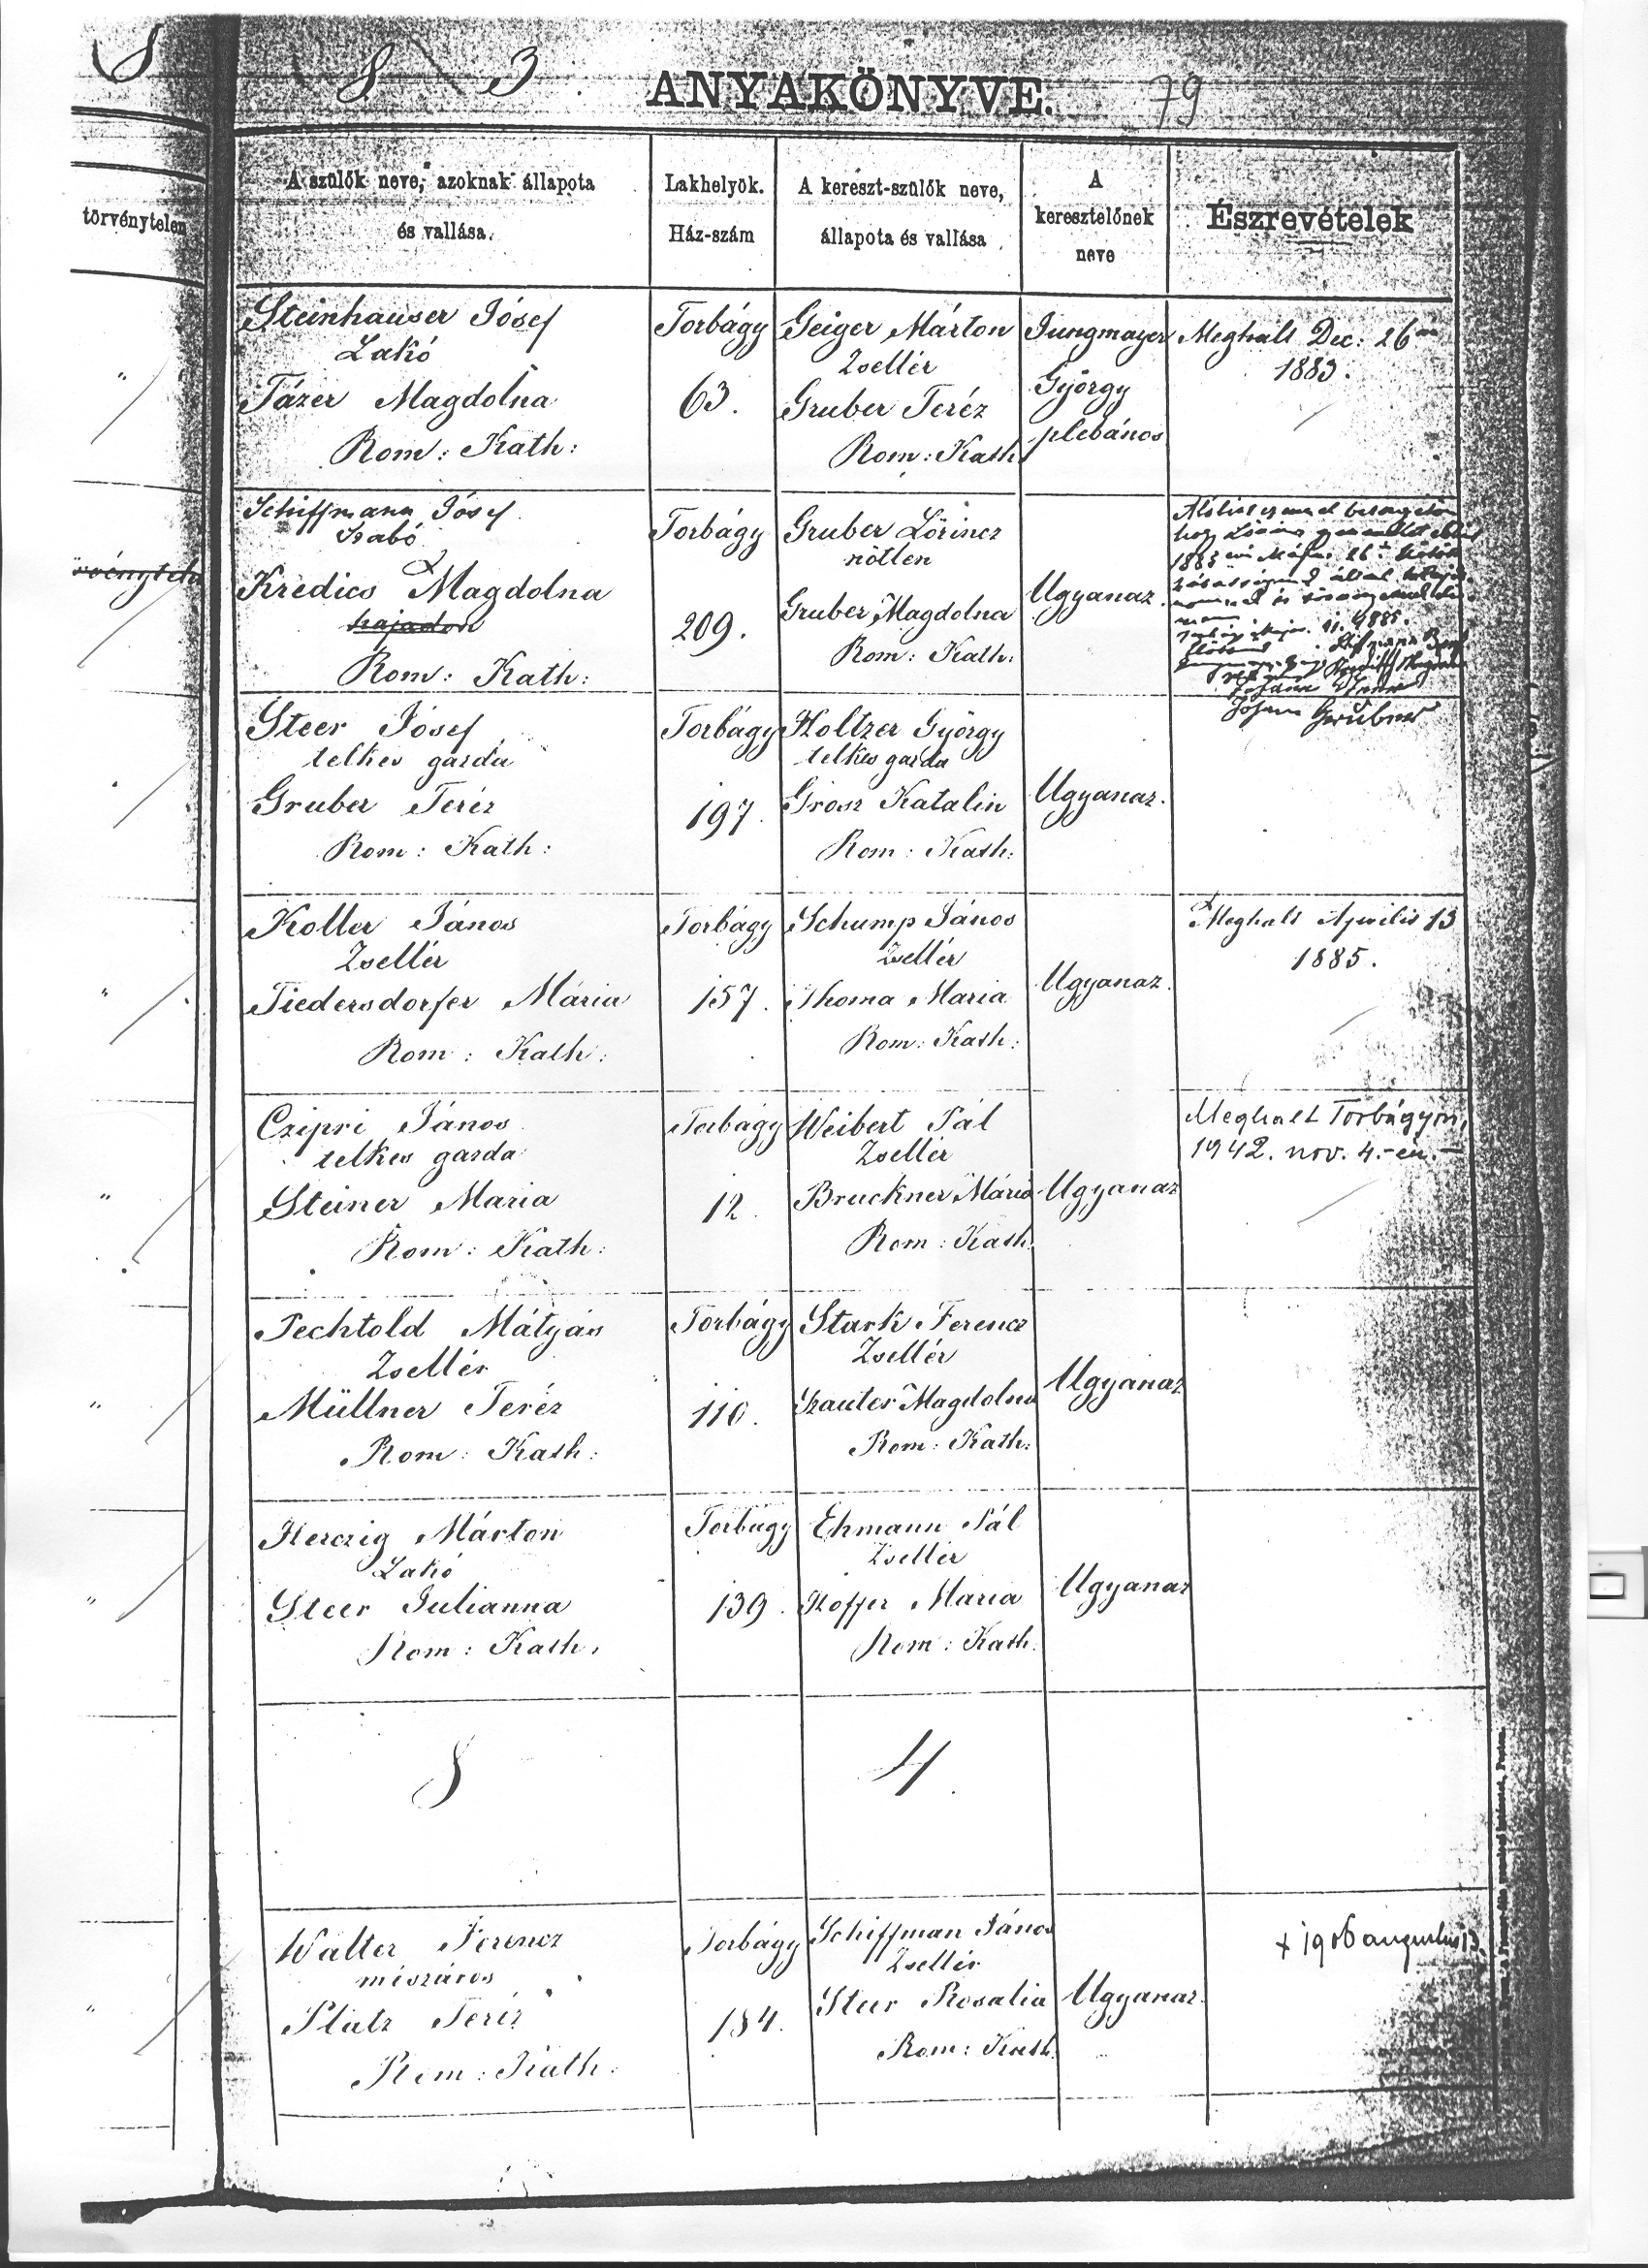 8 8 3
ANYAKÖNYVE.
79
törvénytelen
A szülők neve, azoknak állapota
és vallása.
Lakhelyök.
Ház-szám
A kereszt-szülők neve,
állapota és vallása
A
keresztelőnek
neve
Észrevételek
"
Steinhauser Jósef
Lakó
Tázer Magdolna
Rom: Kath:
Torbágy
63.
Geiger Márton
Zsellér
Gruber Teréz
Rom: Kath
Jungmayer
György
plebános
Meghalt Dec: 26án
1883.
Schiffmann Jósef
Szabó
&
Kredics Magdolna
hajadon
Rom: Kath:
Torbágy
209.
Gruber Lörincz
nötlen
Gruber Magdolna
Rom: Kath:
Ugyanaz.
hogy
1883
által
és
11. 1885.
Johann
Johann Grubner
Steer Jósef
telkes garda
Gruber Teréz
Rom: Kath:
Torbágy
197.
Holtzer György
telkes garda
Grosz Katalin
Rom: Kath:
Ugyanaz.
"
Koller János
Zsellér
Tiedersdorfer Mária
Rom: Kath:
Torbágy
157.
Schump János
Zsellér
Thoma Maria
Rom: Kath:
Ugyanaz.
Meghalt Aprilis 13
1885.
"
Czipri János
telkes garda
Steiner Maria
Rom: Kath:
Torbágy
12.
Weibert Pál
Zsellér
Bruckner Mária
Rom: Kath.
Ugyanaz
Meghalt Torbágyon,
1942. nov. 4.-én.-
"
Pechtold Mátyás
Zsellér
Müllner Teréz
Rom: Kath:
Torbágy
110.
Stark Ferencz
Zsellér
Szauter Magdolna
Rom: Kath:
Ugyanaz
"
Herczig Márton
Lakó
Steer Julianna
Rom: Kath.
Torbágy
139.
Ehmann Pál
Zsellér
Hoffer Maria
Rom: Kath.
Ugyanaz
8 4.
"
Walter Ferencz
mészáros
Platz Teréz
Rom: Kath:
Torbágy
184.
Schiffman János
Zsellér
Steer Rosalia
Rom: Kath.
Ugyanaz.
+ 1906 augusztus 13.